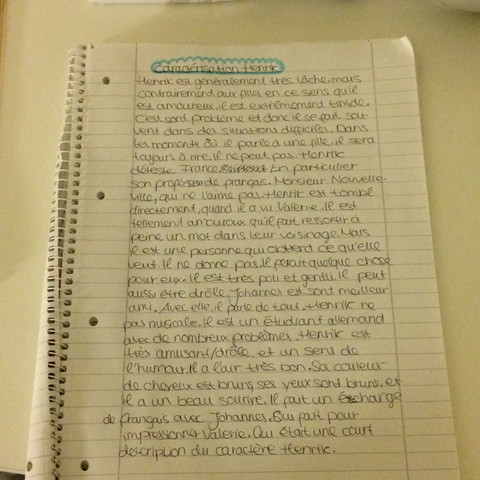 Caractérisation Henrik
Henrik est généralement très lâche, mais
contrairement aux filles en ce sens qu'il
est amoureux, il est extrêmement timide.
C'est sont problème et donc il se fait sou-
vent dans des situations difficiles. Dans
les moments où il parle à une fille, il sera
toujours à rire. Il ne peut pas. Henrik
déteste France En particulier
son professor de français. Monsieur Nouvelle-
ville, qui ne l'aime pas. Henrik est tombé
directement, quand il a vu Valerie. Il est
tellement amouroux qu'il fait ressortir à
peine un mot dans leur voisinage. Mais
il est une personne qui ce qu'elle
veut. Il ne donne pas. Il ferait quelque chose
pour eux. Il est très poli et gentil. Il peut
aussi être drôle. Johannes est sont meilleur
ami. Avec elle, il parle de tout. Henrik ne
pas musicale. Il est un étudiant allemand
avec de nombreux problèmes. Henrik est
très amusant/drôle, et un sens de
l'humour. Il a l'air très bon. Sa couleur
de cheveux est brung, ses yeux sont bruns, et
il a un beau sourire. Il fait un échange
de français avec Johannes. Qui fait pour
impressionner Valerie. Qui était une court
description du caractère Henrik.